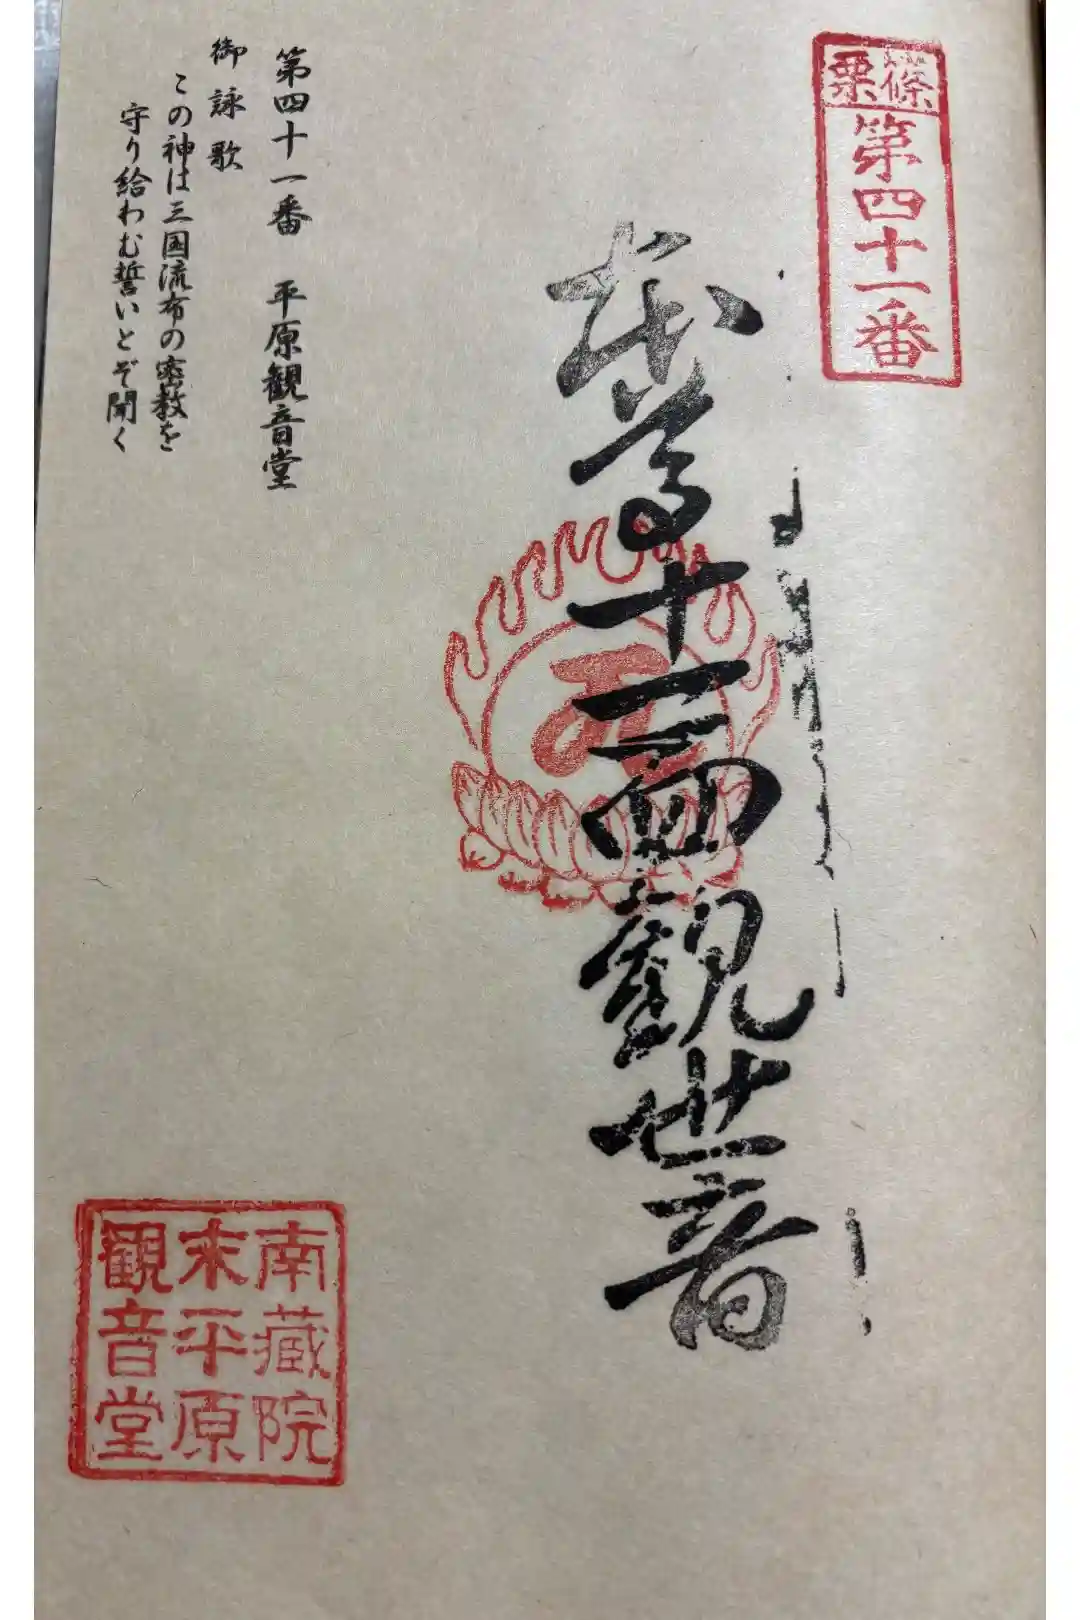 篠栗
第四十一番
本尊十一面觀世音
第四十一番　平原観音堂
御詠歌
この神は三国流布の密教を
守り給わむ誓いとぞ聞く
南蔵院
末平原
観音堂